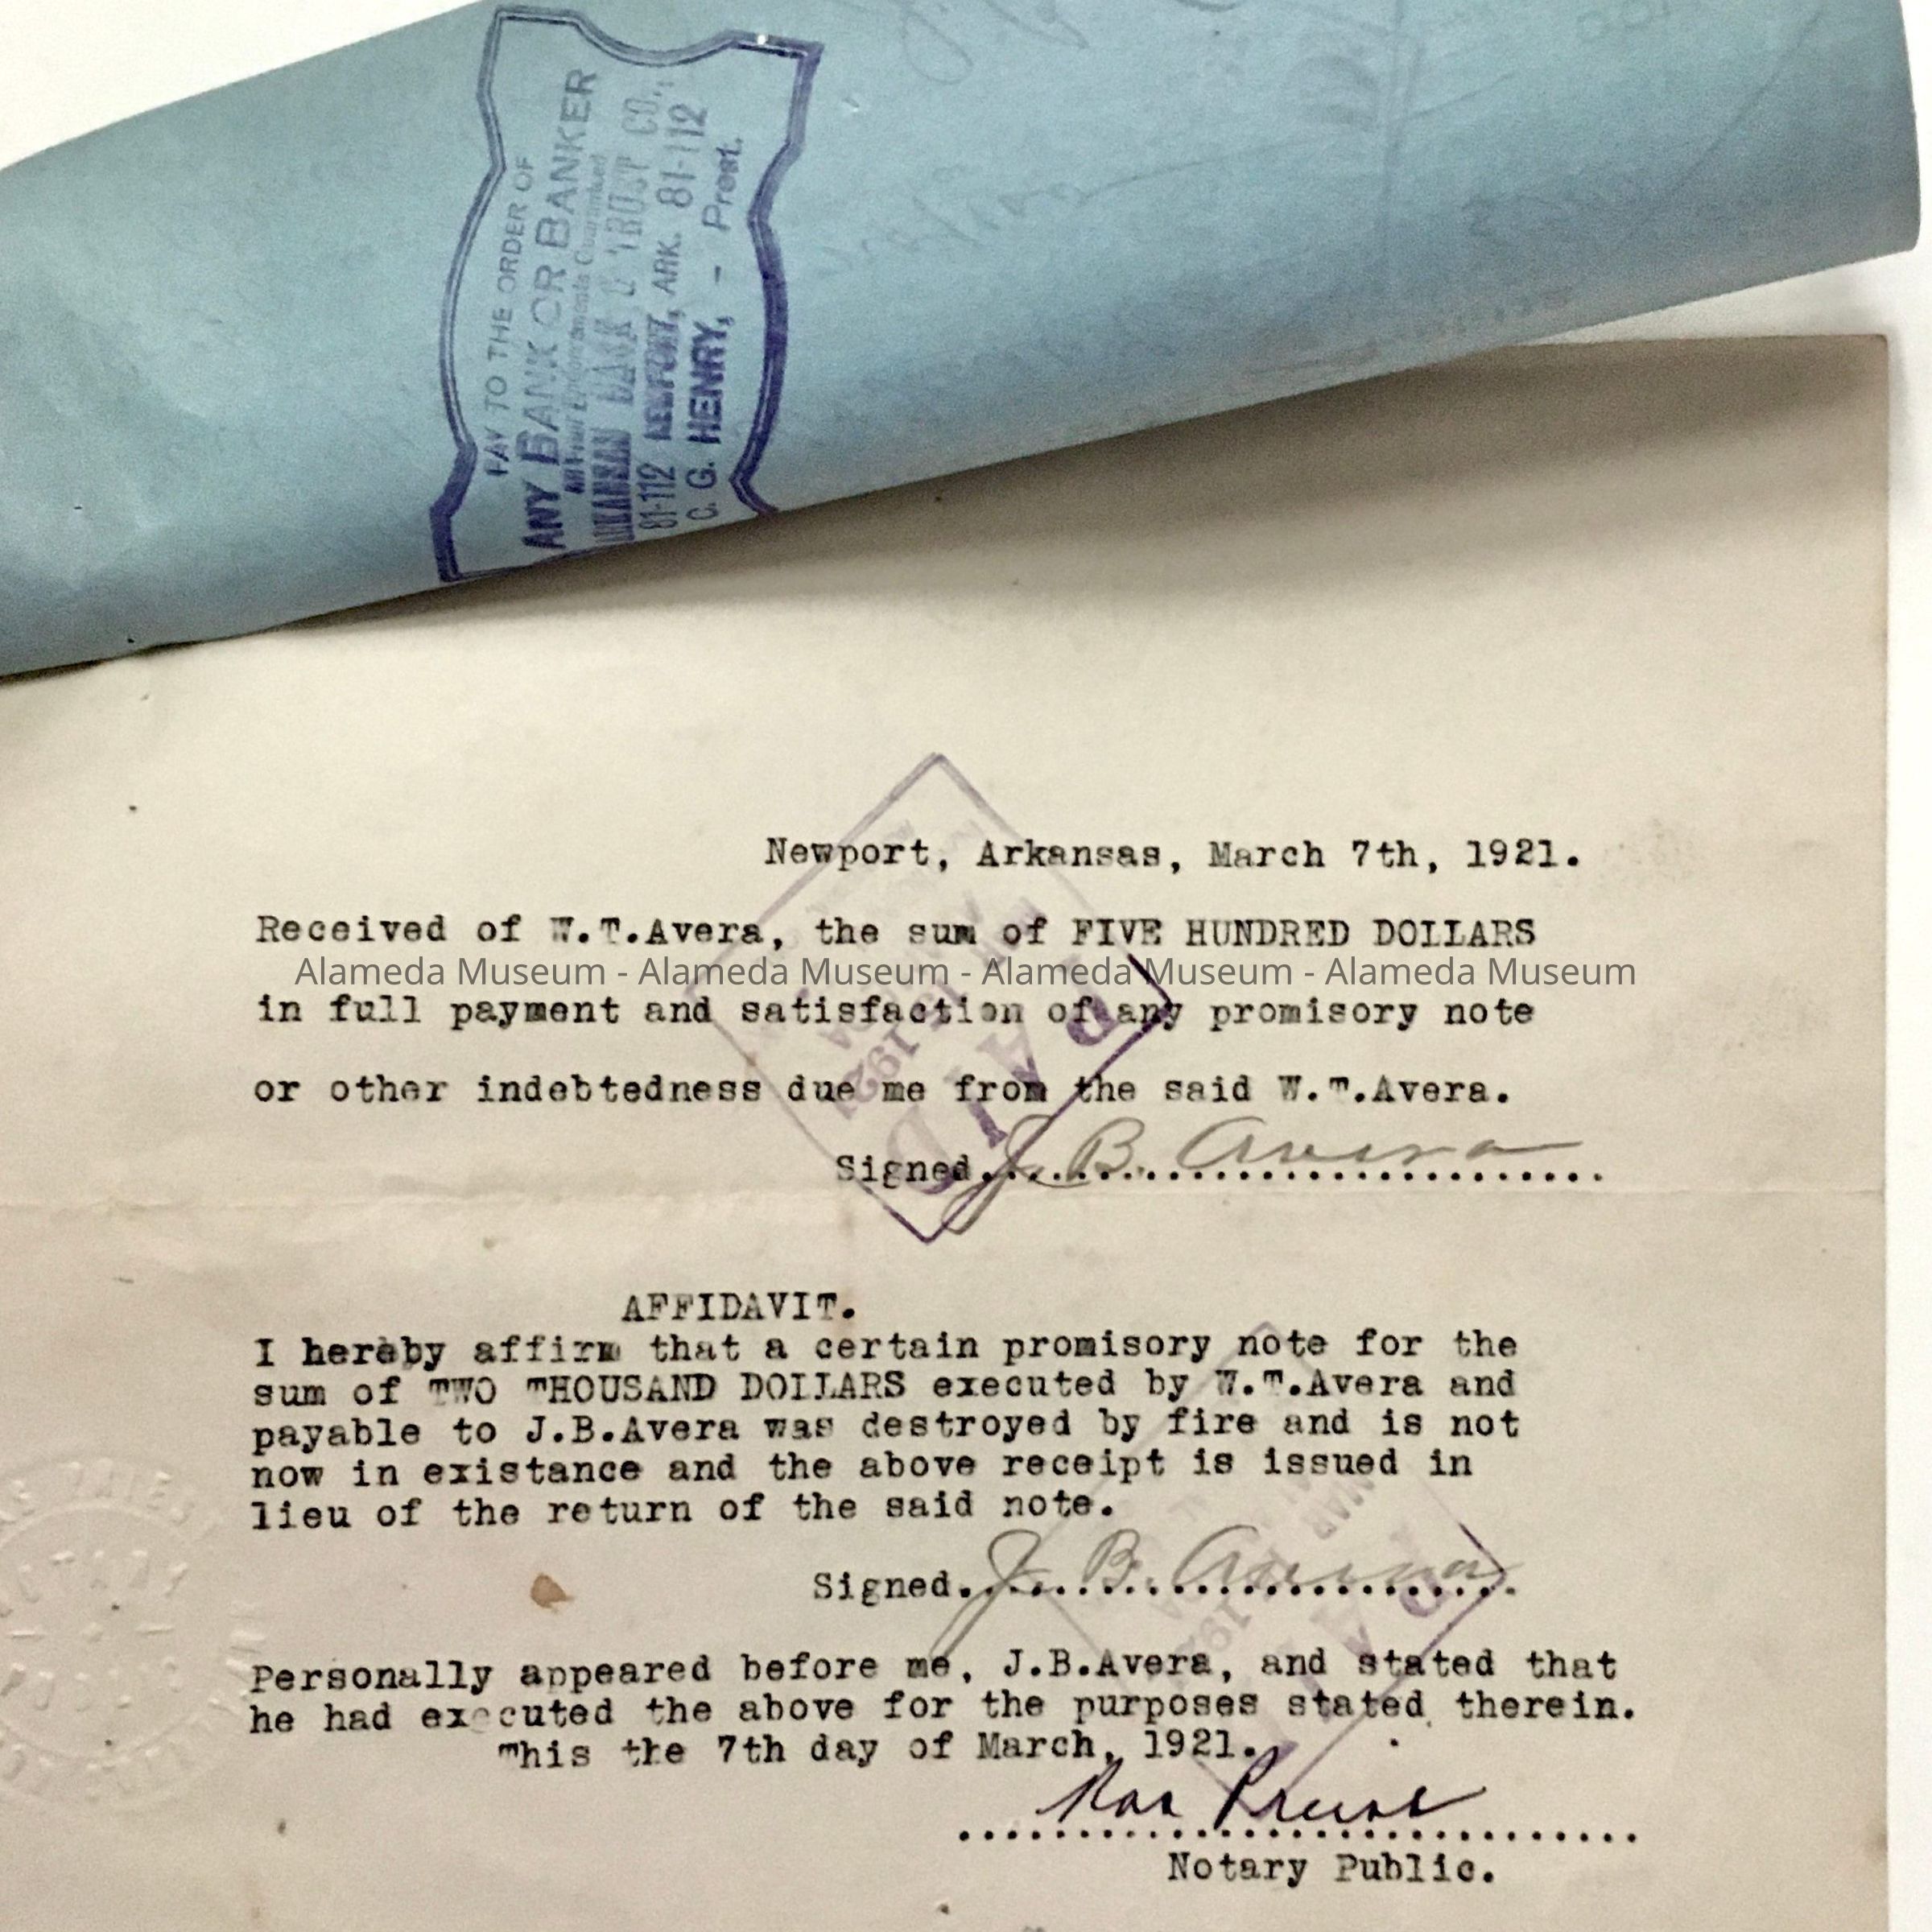 PAY TO THE ORDER OF
ANY BANK OR BANKER
All Prior Endorsements Guaranteed
ARKANSAS BANK & TRUST CO.,
81-112 NEWPORT, ARK. 81-112
C. G. HENRY, - Prest.
Newport, Arkansas, March 7th, 1921.
Received of W.T.Avera, the sum of FIVE HUNDRED DOLLARS
Alameda Museum - Alameda Museum - Alameda Museum - Alameda Museum
in full payment and satisfaction of any promisory note
or other indebtedness due me from the said W.T.Avera.
Signed. J. B. Avera
PAID
1921
AFFIDAVIT.
I hereby affirm that a certain promisory note for the
sum of TWO THOUSAND DOLLARS executed by W.T.Avera and
payable to J.B.Avera was destroyed by fire and is not
now in existance and the above receipt is issued in
lieu of the return of the said note.
Signed. J. B. Avera
MAR
192
PAI
Personally appeared before me, J.B.Avera, and stated that
he had executed the above for the purposes stated therein.
This the 7th day of March, 1921.
Notary Public.